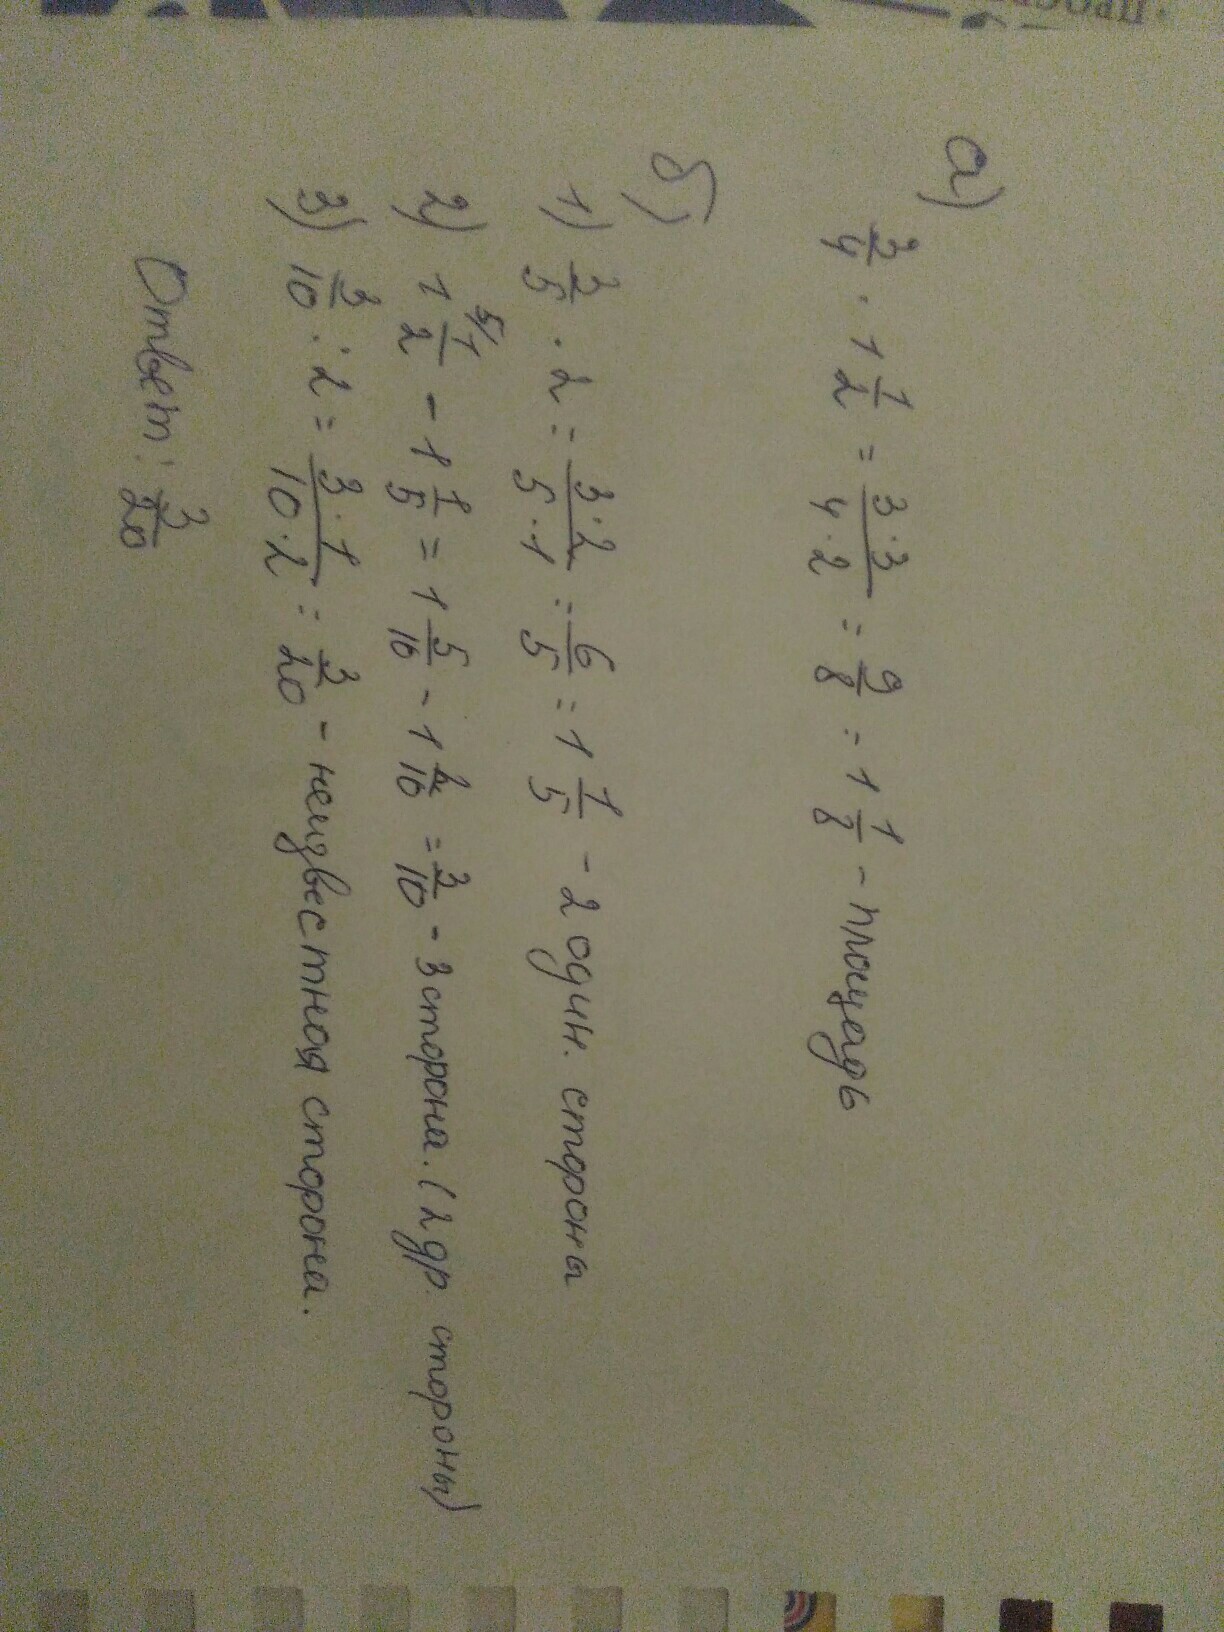 а)
3/4 · 1 1/2 = 3·3/4·2 = 9/8 = 1 1/8 – площадь
б)
1) 3/5 · 2 = 3·2/5·1 = 6/5 = 1 1/5 – 2 один. стороны
2) 1 5/1/2 – 1 1/5 = 1 5/10 – 1 2/10 = 3/10 – 3 сторона. (2 др. стороны)
3) 3/10 : 2 = 3·1/10·2 = 3/20 – неизвестная сторона.
Ответ: 3/20